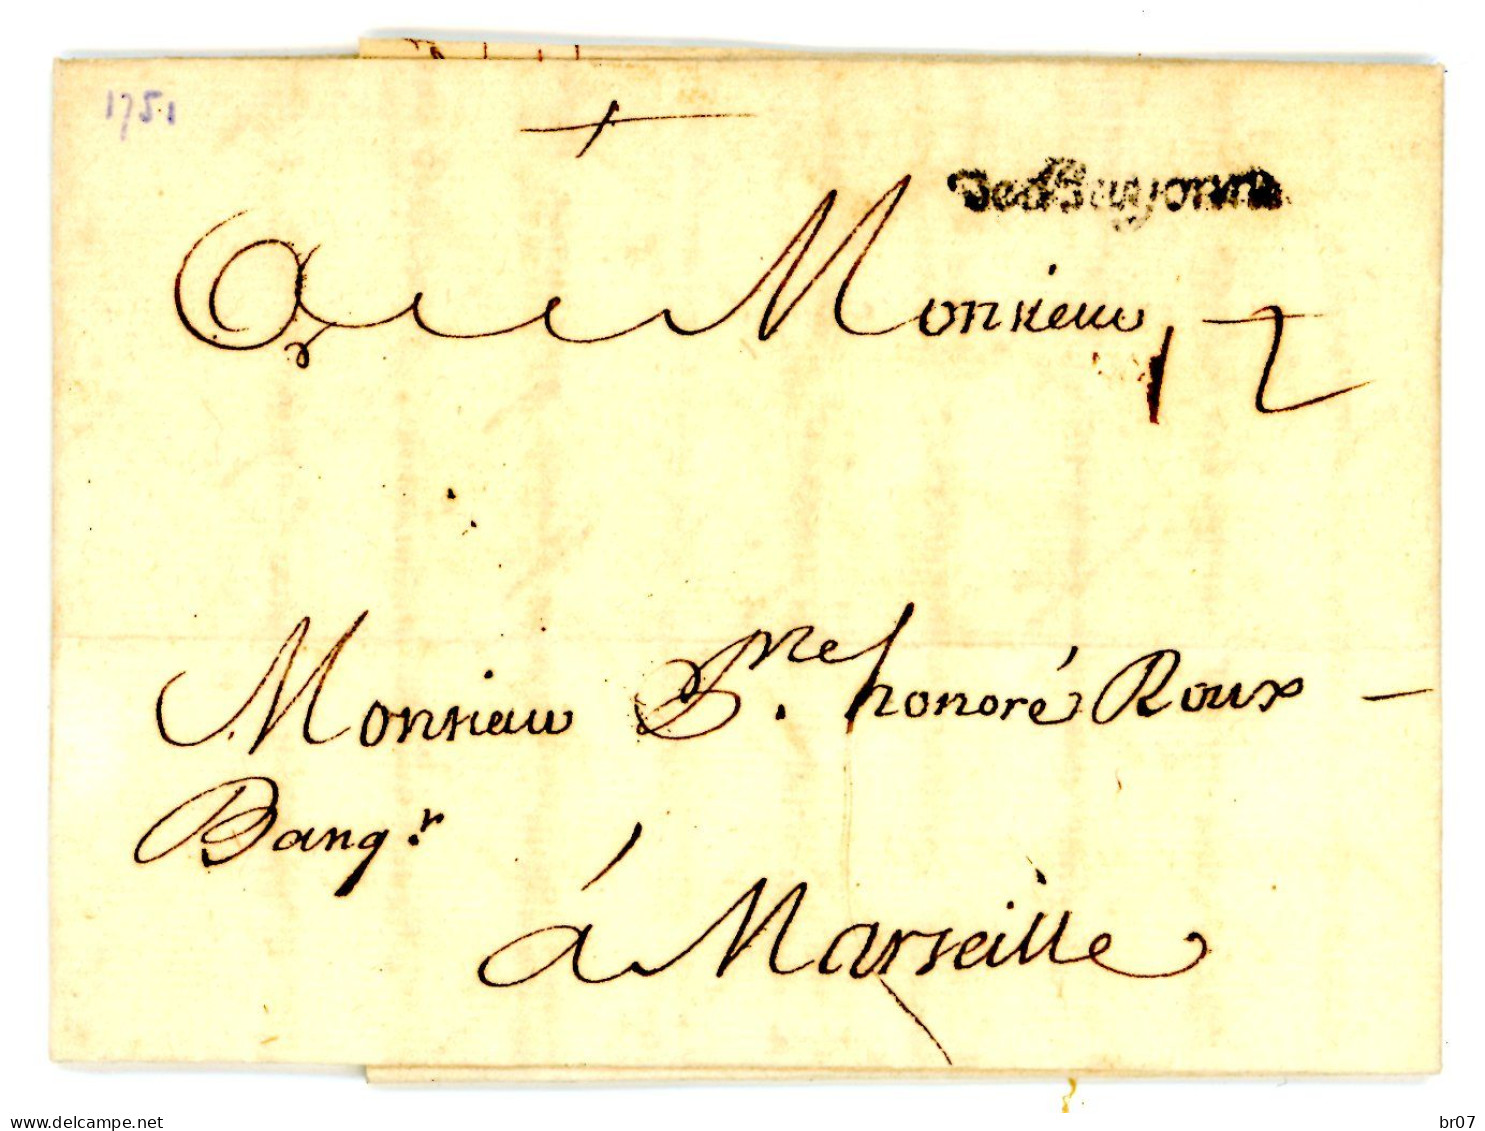 1751
De Bayonne
A Monsieur 12
Monsieur
honoré Roux
Banq.r
á Marseille
www.delcampe.net
br07